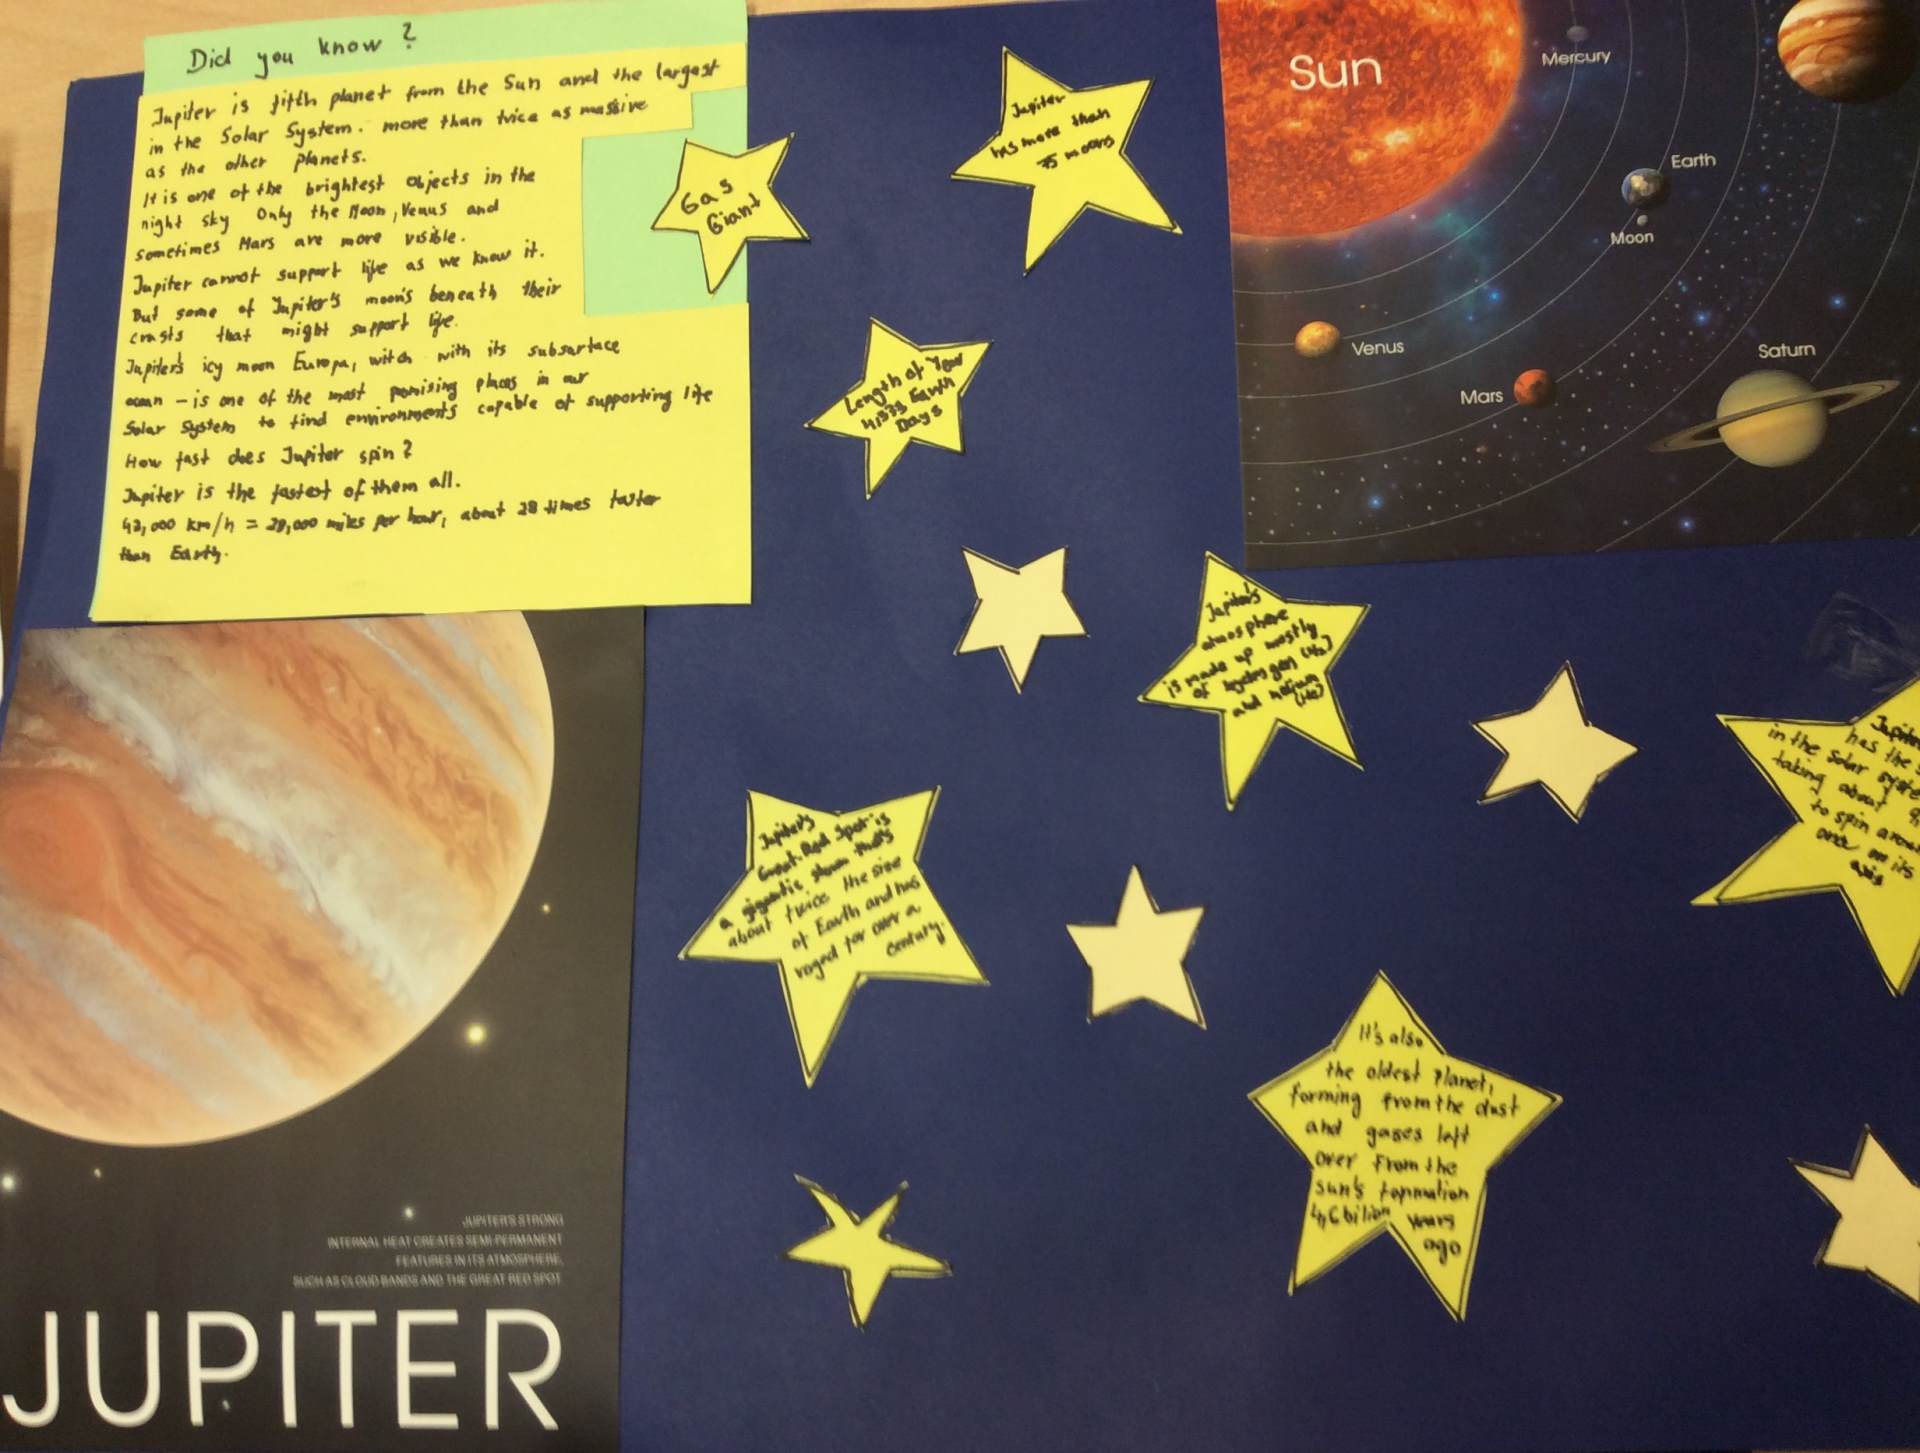 Did you know ?
Jupiter is fifth planet from the Sun and the largest
in the Solar System. more than twice as massive
as the other planets.
It is one of the brightest objects in the
night sky Only the Moon, Venus and
sometimes Mars are more visible.
Jupiter cannot support life as we know it.
But some of Jupiter's moon's beneath their
crusts that might support life.
Jupiter's icy moon Europa, witch with its subsurface
ocean - is one of the most promising places in our
Solar System to find environments capable of supporting life
How fast does Jupiter spin?
Jupiter is the fastest of them all.
km/h = miles per hour, about 28 times faster
than Earth.
Gas
Giant
Jupiter
has more than
75 moons
Length of Year
Earth
Days
Sun
Mercury
Earth
Moon
Venus
Mars
Saturn
Jupiter's
atmosphere
is made up mostly
of hydrogen (H2)
and helium
(He)
Jupiter
has the
in the solar
taking about
to spin
once on its
axis
Jupiter's
Great Red Spot is
a gigantic storm that's
about twice the size
of Earth and has
raged for over a
century.
It's also
the oldest planet,
forming from the dust
and gases left
over from the
sun's
years
ago
JUPITER'S STRONG
INTERNAL HEAT CREATES SEMI-PERMANENT
FEATURES IN ITS ATMOSPHERE,
SUCH AS CLOUD BANDS AND THE GREAT RED SPOT
JUPITER